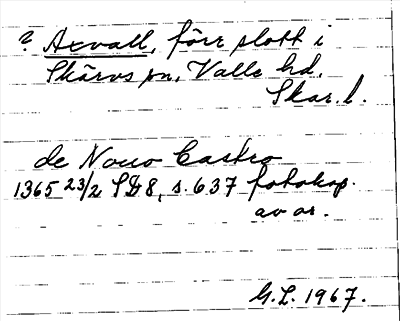 ? Axvall, förr slott i
Skärvs sn, Valle hd.
Skar. l.
de Nouo Castro
1365 23/2 SD8, s. 637 fotokop.
av or.
G.L. 1967.